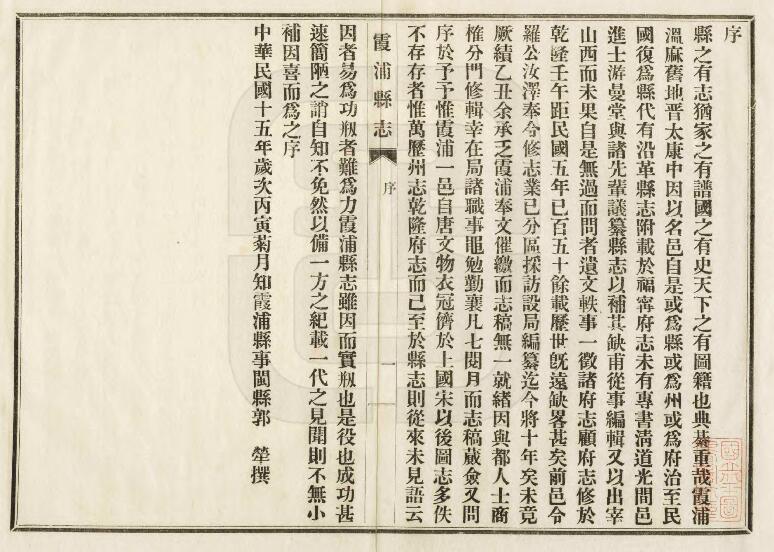 序
縣之有志猶家之有譜國之有史天下之有圖籍也典綦重哉霞浦
溫麻舊地晋太康中因以名邑自是或爲縣或爲州或爲府治至民
國復爲縣代有沿革縣志附載於福甯府志未有專書淸道光間邑
進士游曼堂與諸先輩議纂縣志以補其缺甫從事編輯又以出宰
山西而未果自是無過而問者遺文軼事一徵諸府志顧府志修於
乾隆壬午距民國五年已百五十餘載歷世旣遠缺畧甚矣前邑令
羅公汝澤奉令修志業已分區採訪設局編纂迄今將十年矣未竟
厥績乙丑余承乏霞浦奉文催繳而志稿無一就緒因與都人士商
榷分門修輯幸在局諸職事黽勉勤襄凡七閱月而志稿蕆僉又問
序於予予惟霞浦一邑自唐文物衣冠儕於上國宋以後圖志多佚
不存存者惟萬歷州志乾隆府志而已至於縣志則從來未見語云
霞浦縣志
序
一
因者易爲功刱者難爲力霞浦縣志雖因而實刱也是役也成功甚
速簡陋之誚自知不免然以備一方之紀載一代之見聞則不無小
補因喜而爲之序
中華民國十五年歲次丙寅菊月知霞浦縣事閩縣郭 犖撰